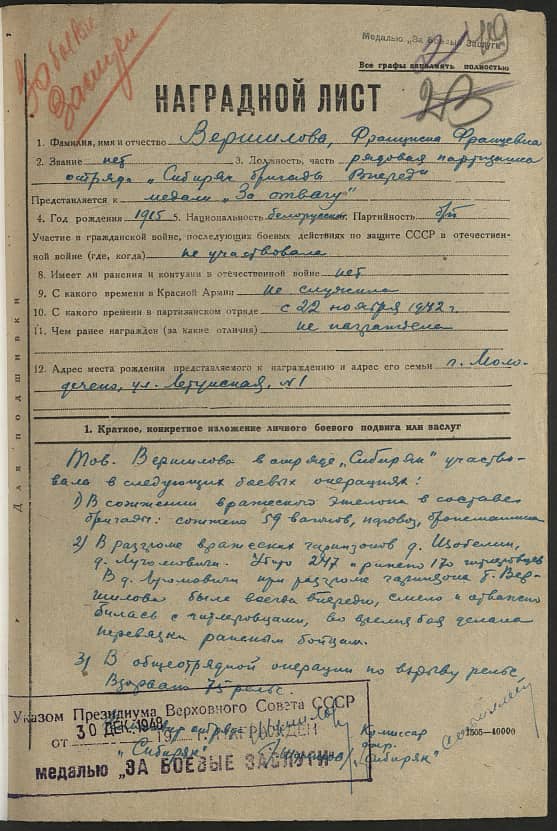 За боевые
Заслуги
Медалью „За Боевые Заслуги"
Все графы заполнять полностью
НАГРАДНОЙ ЛИСТ
1. Фамилия, имя и отчество Вершилова, Франциска Францевна
2. Звание нет 3. Должность, часть рядовая партизанка
отряда „Сибиряк" бригады Вперёд"
Представляется к медали „За отвагу"
4. Год рождения 1915 5. Национальность белорусска Партийность б/п
Участие в гражданской войне, последующих боевых действиях по защите СССР в отечествен-
ной войне (где, когда) не участвовала
8. Имеет ли ранения и контузии в отечественной войне нет
9. С какого времени в Красной Армии не служила
10. С какого времени в партизанском отряде с 22 ноября 1942 г.
11. Чем ранее награжден (за какие отличия) не награждена
12. Адрес места рождения представляемого к награждению и адрес его семьи г. Моло-
дечено, ул. №1
Для подшивки
1. Краткое, конкретное изложение личного боевого подвига или заслуг
Тов. Вершилова в отряде „Сибиряк" участво-
вала в следующих боевых операциях:
1) В сожжении вражеского эшелона в составе
бригады: сожжено 59 вагонов, паровоз,
2) В разгроме вражеских гарнизонов д.
д. Убито 247 и ранено 170 гитлеровцев
В д. при разгроме гарнизона т. Вер-
шилова была всегда впереди, смело и отважно
билась с гитлеровцами, во время боя делала
перевязки раненым бойцам.
3) В общеотрядной операции по взрыву рельс
Взорвано 75 рельс.
Указом Президиума Верховного Совета СССР
от 30 ДЕК. 1948 19 г. НАГРАЖДЕН
медалью „ЗА БОЕВЫЕ ЗАСЛУГИ"
„Сибиряк"
Комиссар
отр.
„Сибиряк"
1505—40000